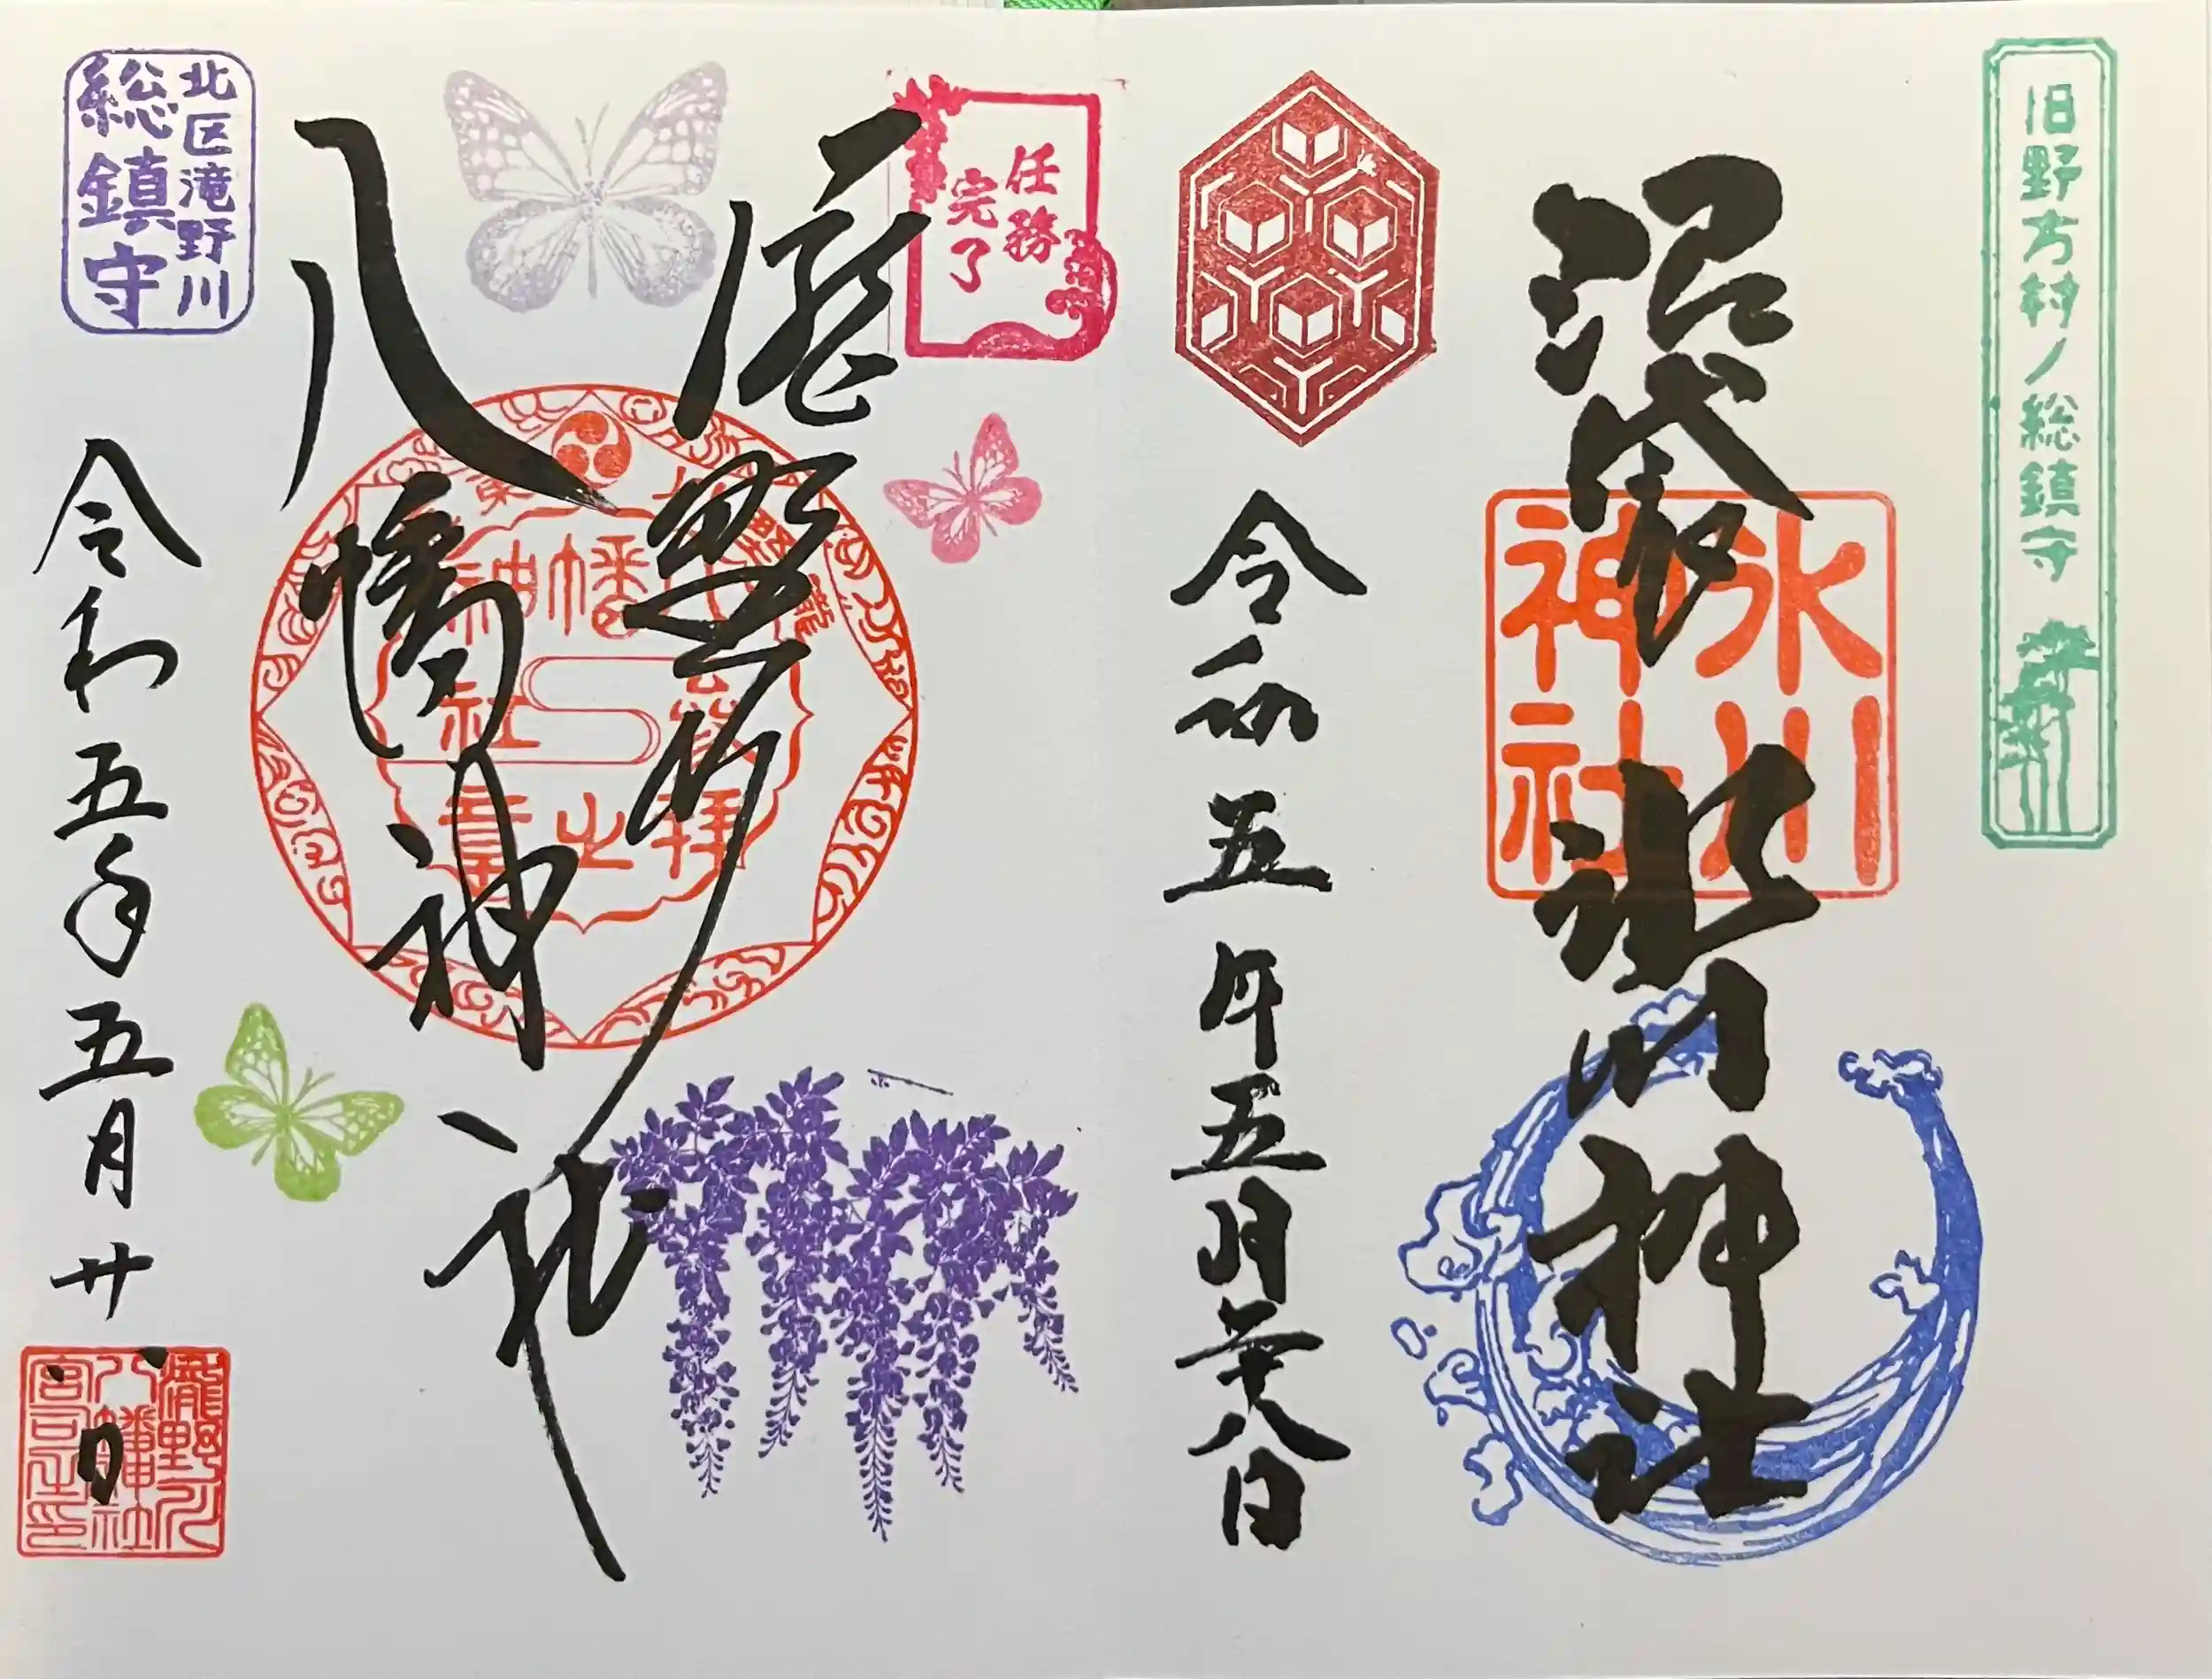 旧野方村ノ総鎮守
沼袋氷川神社
氷川
神社
令和五年五月廿八日
任務
完了
滝野川
八幡神社
北区滝野川
総鎮守
令和五年五月廿八日
瀧野川
八幡社
宮司之印